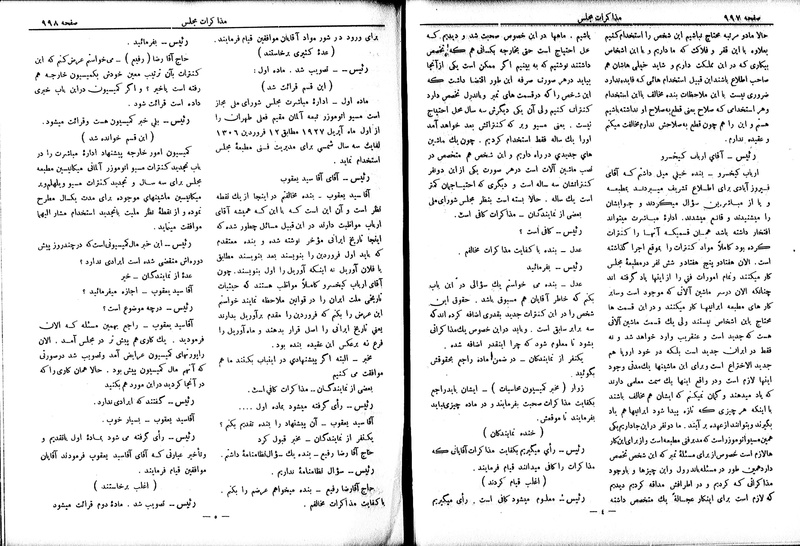 صفحه ۹۹۷
مذاکرات مجلس
حالا مادر مرتبه محتاج نباشیم این شخص را استخدام کنیم
بعلاوه با این فقر و فلاکت که ما داریم و با این اشخاص
بیکاری که در این مملکت داریم و شاید خیلی هاشان هم
صاحب اطلاع باشند این قبیل استخدام هائی که فایده ندارد
ضروری نیست با این ملاحظات بنده مخالفم با این استخدام
وهر استخدامی که صلاح یعنی قطع به صلاح او نداشته باشیم
هستم و این را هم چون قطع به صلاحش ندارم مخالفت میکنم
و عقیده ندارم.
رئیس – آقای ارباب کیخسرو
ارباب کیخسرو – بنده خیلی میل داشتم که آقای
فیروز آبادی برای اطلاع تشریف میبردند بمطبعه
و از مباشرین سؤال میکردند و جوابشان
را میشنیدند و قانع میشدند. ادارهٔ مباشرت میتواند
افتخار داشته باشد همان قسمیکه آنها را کنترات
کرده بود کاملاً مواد کنترات را بموقع اجرا گذاشته
است. الان هفتاد پنج هفتاد و شش نفر در مطبعهٔ مجلس
کار میکنند وتمام امورات فنی را از اینها یاد گرفته اند
چنانکه الان در سر ماشین آلاتی که موجود است و سایر
کار های مطبعه ایرانیها کار میکنند و در این قسمت ها
محتاج باین اشخاص نیستند ولی یک قسمت ماشین آلاتی
هست که جدید است و عنقریب وارد خواهد شد و نه
فقط در ایران جدید است بلکه در خود اروپا هم
جدید الاختراع است و برای این ماشینها یک مدتی وجود
اینها لازم است و در واقع اینها یک سمت معلمی دارند
که یاد میدهند و گمان نمیکنم که ایشان هم مخالف باشند
با اینکه هر چیزی که تازه پیدا شود ایرانیها هم یاد
بگیرند و بتوانند از عهده بر آیند. ما دو نفر در اینجا داریم یکی
همین مسیو اتوموزر است که مدیر فنی مطبعه است و از برای این کار
هالازم است خصوص از برای مسئلهٔ نمبر که این شخص تخصص
دارد همین طور در مسئله باندرول و این چیزها و باوجود
مذاکراتی که کردیم و در اطرافش مداقه کردیم دیدیم
که لازم است برای اینکار عجالتاً یک متخصص داشته
باشیم. ماهها در این خصوص صحبت شد و دیدیم که
عمل احتیاج است حتی بخارجه بکسانی هم که تخصص
داشتند نوشتیم که به بینیم اگر ممکن است یکی از آنجا
بیاید در هر صورت صرفه این طور اقتضا داشت که
این شخص را که در قسمت های نمبر و باندرل تخصص دارد
کنترات کنیم ولی آن یکی دیگرش سه سال محل احتیاج
نیست. یعنی مسیو ویر که کنتراتش بعد خواهد آمد
اورا یک ساله فقط استخدام کردیم. چون یک ماشین
های جدیدی در راه داریم و این شخص هم متخصص در
نصب ماشین آلات است در هر صورت یکی از این دو نفر
کنتراتشان سه ساله است و دیگری که احتیاجمان کمتر
است یک ساله. حالا بسته است بنظر مجلس شورای ملی
بعضی از نمایندگان – مذاکرات کافی است.
رئیس – کافی است؟
عدل – بنده با کفایت مذاکرات مخالفم.
رئیس – بفرمائید
عدل – بنده می خواستم یک سؤالی در این باب
بکنم که خاطر آقایان هم مسبوق باشد. حقوق این
شخص را در این کنترات جدید بقدری اضافه کرده اند که
سه برابر سابق است. و باید در این خصوص یک مذاکراتی
بشود تا معلوم شود که چرا اینقدر اضافه شده.
یکنفر از نمایندگان – در ضمن اٰماده راجع بحقوقش
بگوئید.
زوار (مخبر کمیسیون محاسبات) – ایشان باید راجع
بکفایت مذاکرات صحبت بفرمایند و در ماده چیزی نباید
بفرمایند تا موقعش.
(خنده نمایندگان)
رئیس – رأی میگیریم بکفایت مذاکرات آقایانی که
مذاکرات را کافی میدانند قیام فرمایند.
(اغلب قیام کردند)
رئیس – معلوم میشود کافی است. رأی میگیریم
– ٤ –
مذاکرات مجلس
صفحه ۹۹۸
برای ورود در شور مواد آقایان موافقین قیام فرمایند.
(عدهٔ کثیری برخاستند)
رئیس – تصویب شد. ماده اول:
(این قسم قرائت شد)
ماده اول – ادارهٔ مباشرت مجلس شورای ملی مجاز
است مسیو اتوموزر تبعه آلمان مقیم فعلی طهران را
از اول ماه آوریل ۱۹۲۷ مطابق ۱۲ فروردین ۱۳۰۶
لغایت سه سال شمسی برای مدیریت فنی مطبعهٔ مجلس
استخدام نماید.
رئیس – آقای آقا سید یعقوب
آقا سید یعقوب – بنده مخالفتم در اینجا از یک نقطه
نظر است و آن این است که با این که همیشه آقای
ارباب مواظبت دارند در این قبیل مسائل چطور شده که
اینجا تاریخ ایرانی مؤخر نوشته شده و بنده معتقدم
که باید اول فروردین را بنویسند بعد بنویسند مطابق
با فلان آوریل نه اینکه آوریل را اول بنویسند. چون
آقای ارباب کیخسرو کاملاً مواظب هستند که حیثیات
تاریخی ملت ایران را در قوانین ملاحظه نمایند خواستم
این عرض را بکنم که فروردین را مقدم برآوریل بدارند
یعنی تاریخ ایرانی را اصل قرار بدهند و ماه آوریل را
فرع نه برعکس این عقیده بنده بود.
مخبر – البته اگر پیشنهادی در اینباب بکنند ما هم
موافقت می کنیم
بعضی از نمایندگان – مذاکرات کافی است.
رئیس – رأی گرفته میشود بماده اول ....
آقا سید یعقوب – آن پیشنهاد را بنده تقدیم بکنم؟
یکنفر از نمایندگان – مخبر قبول کرد
حاج آقا رضا رفیع – بنده یک سؤال نظامنامهٔ داشتم.
رئیس – سؤال نظامنامهٔ نداریم.
حاج آقا رضا رفیع – بنده میخواهم عرضم را بکنم.
با کفایت مذاکرات مخالفم.
رئیس – بفرمائید.
حاج آقا رضا (رفیع) – می خواستم عرض کنم که این
کنترات بآن ترتیب معین خودش بکمیسیون خارجه هم
رفته است یاخیر؟ و اگر کمیسیون در این باب خبری
داده است قرائت شود.
رئیس – بلی خبر کمیسیون هست و قرائت میشود.
(این قسم خوانده شد)
کمیسیون امور خارجه پیشنهاد ادارهٔ مباشرت را در
باب تجدید کنترات مسیو اتوموزر آلمانی میکانیسین مطبعه
مجلس برای سه سال و تجدید کنترات مسیو ویلهلم ویر
میکانیسین ماشینهای موجوده برای مدت یکسال مطرح
نموده و از نقطهٔ نظر ملیت با تجدید استخدام مشار الیهما
موافقت مینماید.
رئیس – این خبر مال کمیسیونی است که در چند روز پیش
دوره اش منقضی شده است ایرادی ندارد؟
عدهٔ از نمایندگان – خیر
آقا سید یعقوب – اجازه میفرمائید؟
رئیس – درچه موضوع است؟
آقا سید یعقوب – راجع بهمین مسئله که الان
فرمودید. یک کاری هم پیش تر در مجلس آمد. الان
راپورتهای کمیسیون عرایض آمد و تصویب شد درصورتی
که آنهم مال کمیسیون پیش بود. حالا همان کاری را که
در آنجا کردید در این مورد هم بکنید
رئیس – گفتند که ایرادی ندارد.
آقا سید یعقوب – بسیار خوب.
رئیس – رأی گرفته می شود بمادهٔ اول باتقدیم و
وتأخیر عبارتی که آقای آقا سید یعقوب فرمودند آقایان
موافقین قیام فرمایند.
(اغلب برخاستند)
رئیس – تصویب شد. مادهٔ دوم قرائت میشود
– ٥ –